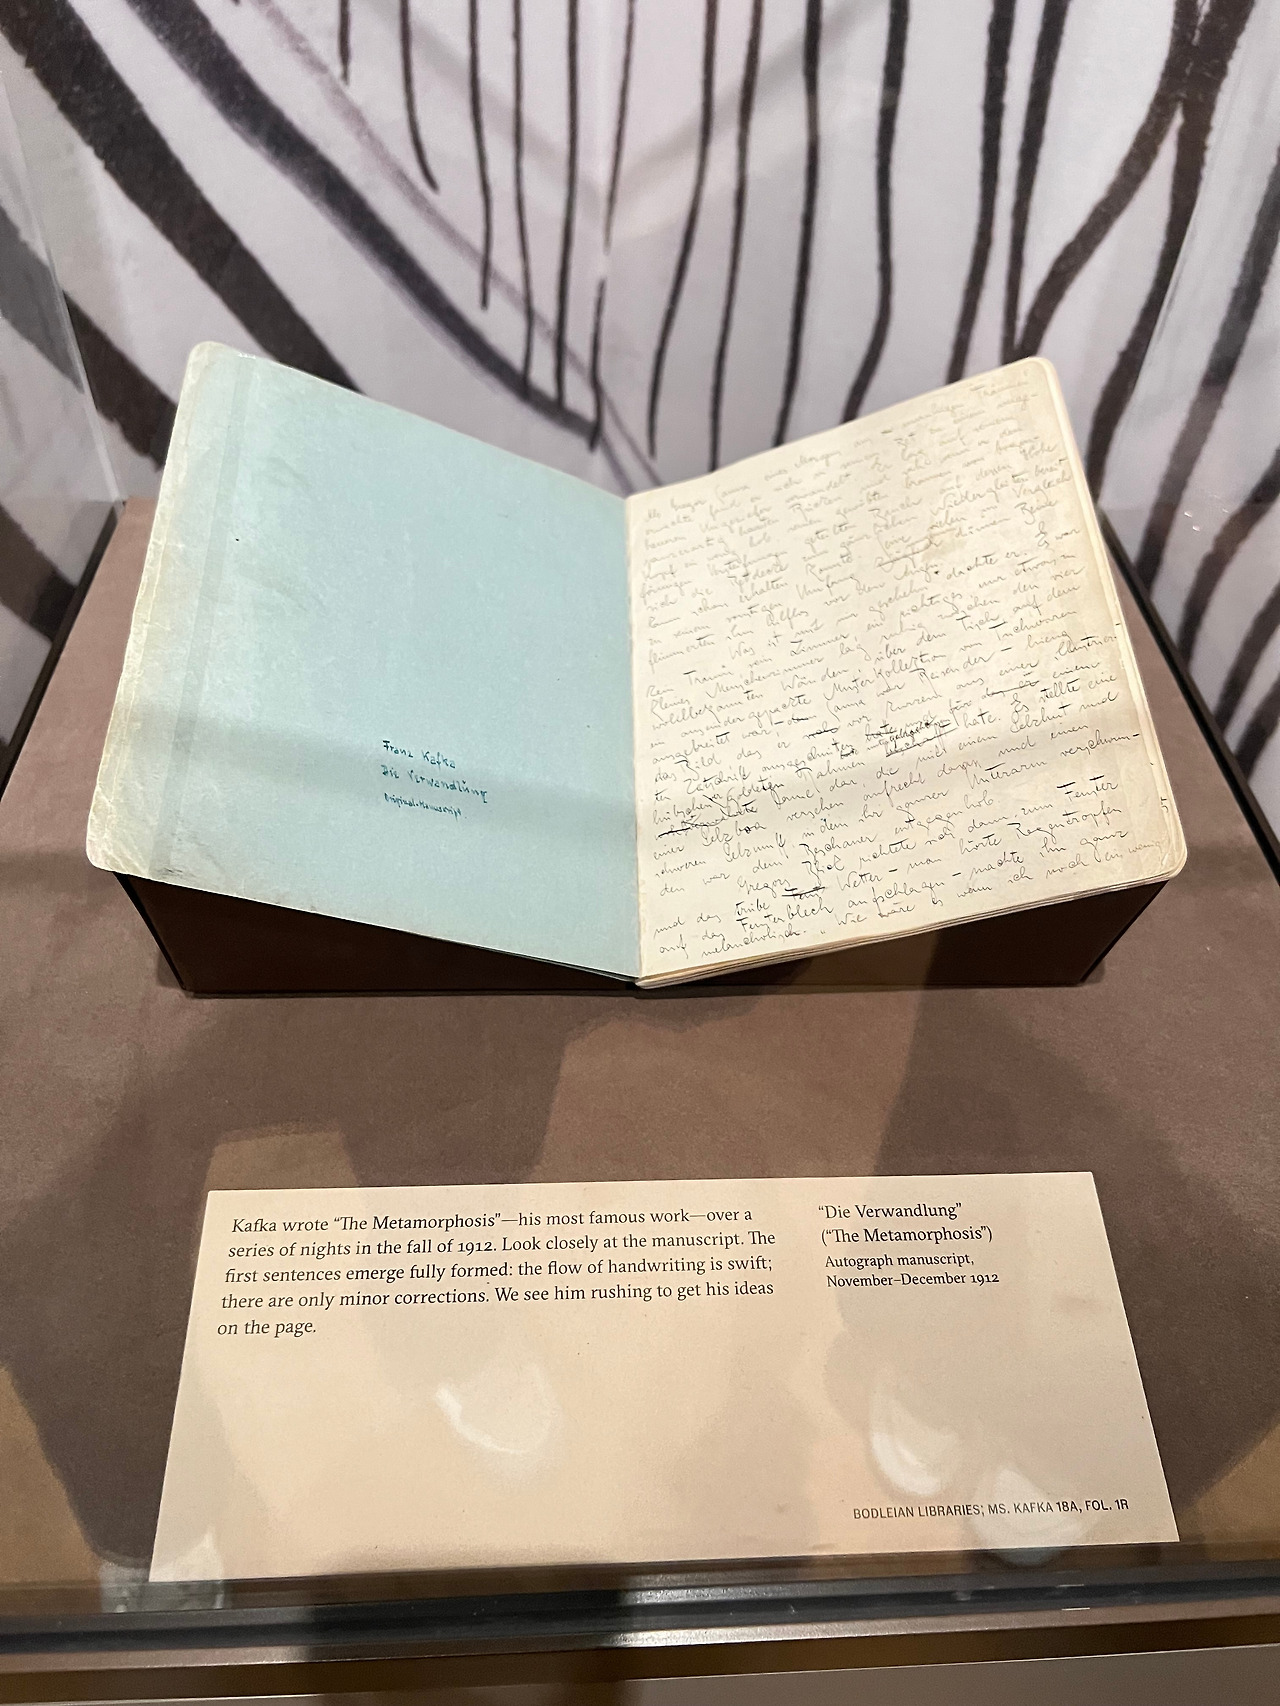 Franz Kafka
Die Verwandlung
Original-Manuscript
Als Gregor Samsa eines Morgens aus unruhigen Träumen
erwachte fand er sich in seinem Bett zu einem unge-
heueren Ungeziefer verwandelt. Er lag auf seinem
panzerartig harten Rücken und sah wenn er den
Kopf ein wenig hob seinen gewölbten braunen von bogen-
förmigen Versteifungen geteilten Bauch auf dessen Höhe
sich die Bettdecke zum gänzlichen Niedergleiten bereit
kaum noch erhalten konnte. Seine vielen im Vergleich
zu seinem sonstigen Umfang dünnen Beine
flimmerten ihm hilflos vor den Augen.
Was ist mit mir geschehn? dachte er. Es war
kein Traum, sein Zimmer, ein richtiges nur etwas zu
kleines Menschenzimmer lag ruhig zwischen den vier
wohlbekannten Wänden, über dem Tisch auf dem
auseinandergepackte Musterkollektion von Tuchwaren
ausgebreitet war, – Samsa war Reisender – hieng
das Bild das er vor kurzem aus einer illustrier-
ten Zeitschrift ausgeschnitten einem
hübschen vergoldeten Rahmen hatte. Es stellte eine
Dame dar, die mit einem Pelzhut und
einer Pelzboa versehen aufrecht dasass und einen
schweren Pelzmuff, in dem ihr ganzer Unterarm verschwun-
den war dem Beschauer entgegenhob.
Gregors Blick richtete sich dann zum Fenster
und das trübe Wetter – man hörte Regentropfen
auf das Fensterblech aufschlagen – machte ihn ganz
melancholisch. „Wie wäre es wenn ich noch ein wenig
Kafka wrote “The Metamorphosis”—his most famous work—over a
series of nights in the fall of 1912. Look closely at the manuscript. The
first sentences emerge fully formed: the flow of handwriting is swift;
there are only minor corrections. We see him rushing to get his ideas
on the page.
“Die Verwandlung”
(“The Metamorphosis”)
Autograph manuscript,
November–December 1912
BODLEIAN LIBRARIES; MS. KAFKA 18A, FOL. 1R